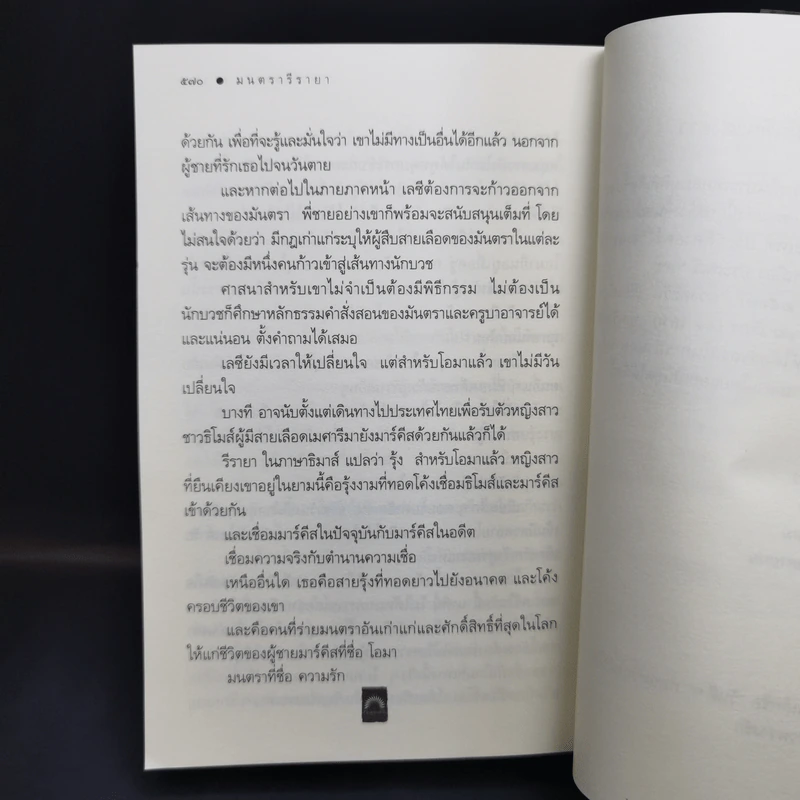 ๕๗๐ ● มนตรารีรายา
ด้วยกัน เพื่อที่จะรู้และมั่นใจว่า เขาไม่มีทางเป็นอื่นได้อีกแล้ว นอกจาก
ผู้ชายที่รักเธอไปจนวันตาย
และหากต่อไปในภายภาคหน้า เลซีต้องการจะก้าวออกจาก
เส้นทางของมันตรา พี่ชายอย่างเขาก็พร้อมจะสนับสนุนเต็มที่ โดย
ไม่สนใจด้วยว่า มีกฎเก่าแก่ระบุให้ผู้สืบสายเลือดของมันตราในแต่ละ
รุ่น จะต้องมีหนึ่งคนก้าวเข้าสู่เส้นทางนักบวช
ศาสนาสำหรับเขาไม่จำเป็นต้องมีพิธีกรรม ไม่ต้องเป็น
นักบวชก็ศึกษาหลักธรรมคำสั่งสอนของมันตราและครูบาอาจารย์ได้
และแน่นอน ตั้งคำถามได้เสมอ
เลซียังมีเวลาให้เปลี่ยนใจ แต่สำหรับโอมาแล้ว เขาไม่มีวัน
เปลี่ยนใจ
บางที อาจนับตั้งแต่เดินทางไปประเทศไทยเพื่อรับตัวหญิงสาว
ชาวธิโมส์ผู้มีสายเลือดเมศารีมายังมาร์คีสด้วยกันแล้วก็ได้
รีรายา ในภาษาธิมาส์ แปลว่า รุ้ง สำหรับโอมาแล้ว หญิงสาว
ที่ยืนเคียงเขาอยู่ในยามนี้คือรุ้งงามที่ทอดโค้งเชื่อมธิโมส์และมาร์คีส
เข้าด้วยกัน
และเชื่อมมาร์คีสในปัจจุบันกับมาร์คีสในอดีต
เชื่อมความจริงกับตำนานความเชื่อ
เหนืออื่นใด เธอคือสายรุ้งที่ทอดยาวไปยังอนาคต และโค้ง
ครอบชีวิตของเขา
และคือคนที่ร่ายมนตราอันเก่าแก่และศักดิ์สิทธิ์ที่สุดในโลก
ให้แก่ชีวิตของผู้ชายมาร์คีสที่ชื่อ โอมา
มนตราที่ชื่อ ความรัก